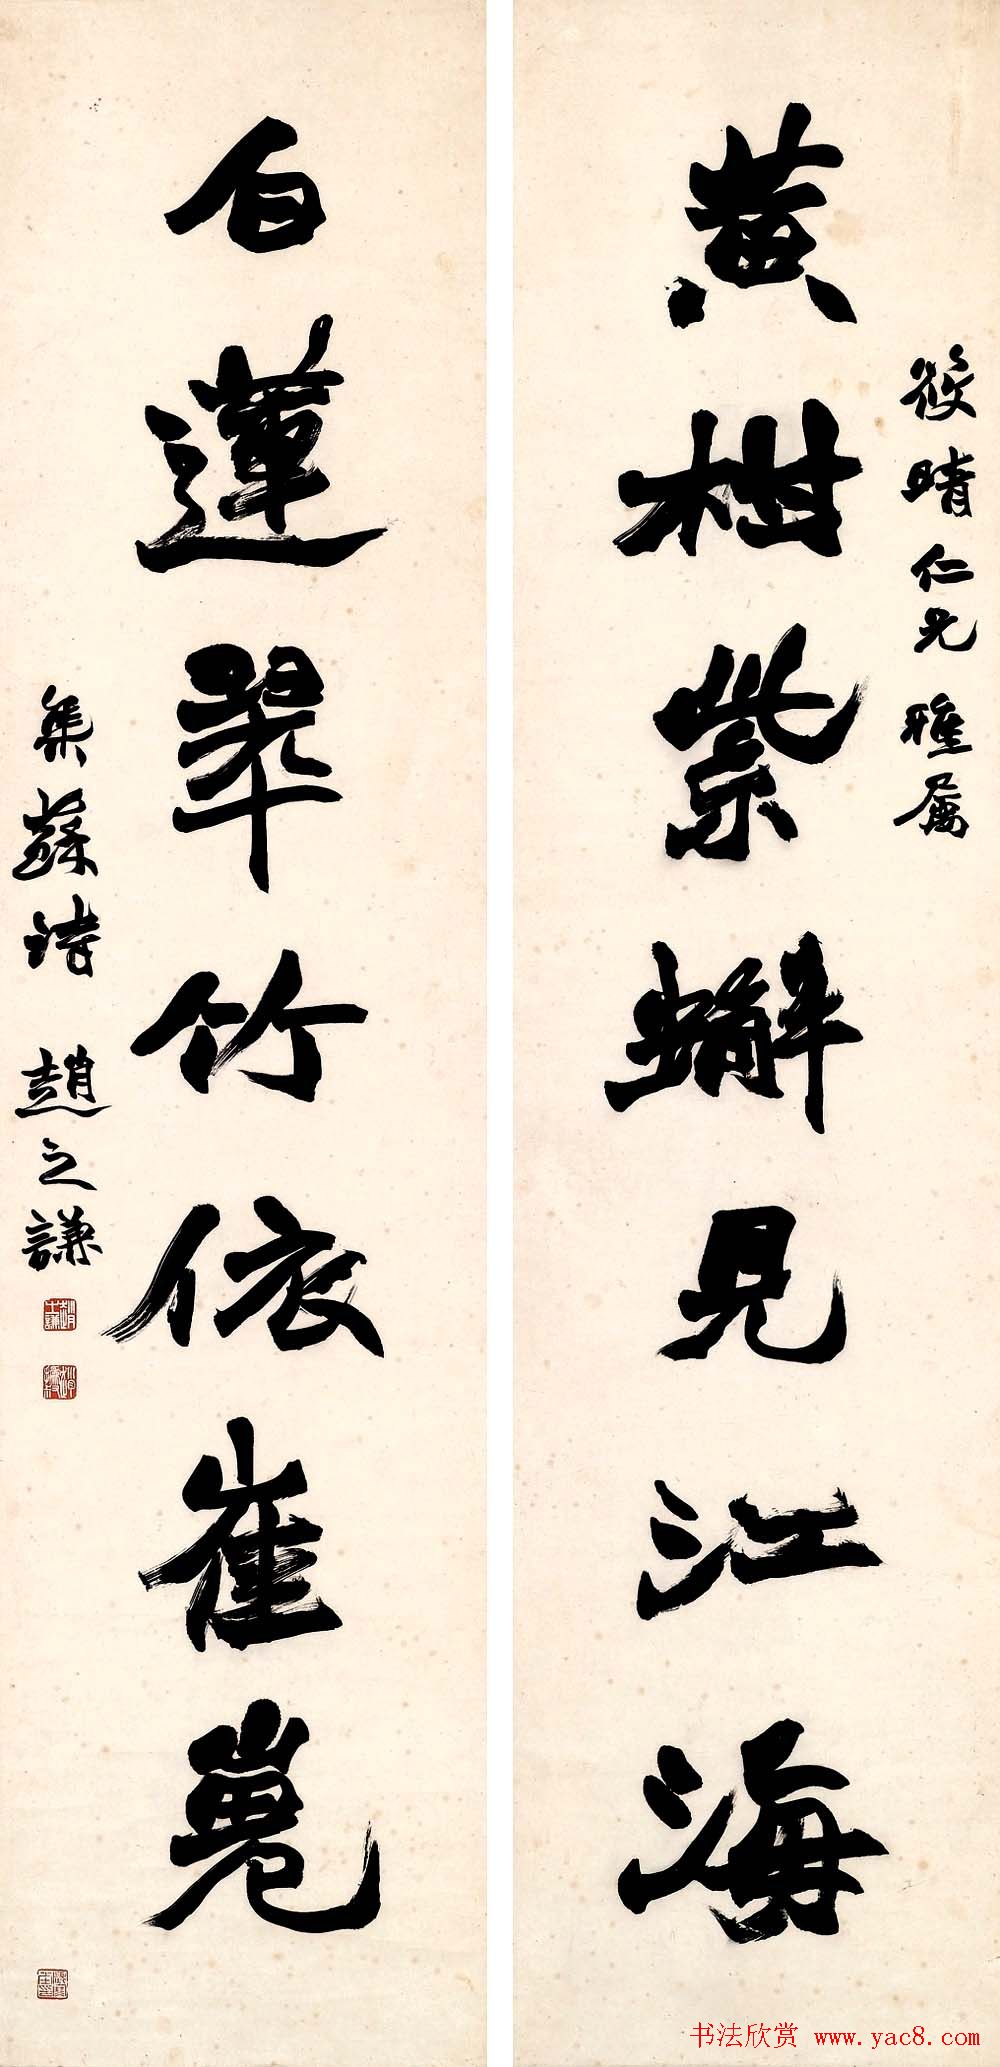 筱晴仁兄雅屬
黄柑紫蠏見江海
白蓮翠竹依崔嵬
集蘇詩 趙之謙
书法欣赏 www.yac8.com